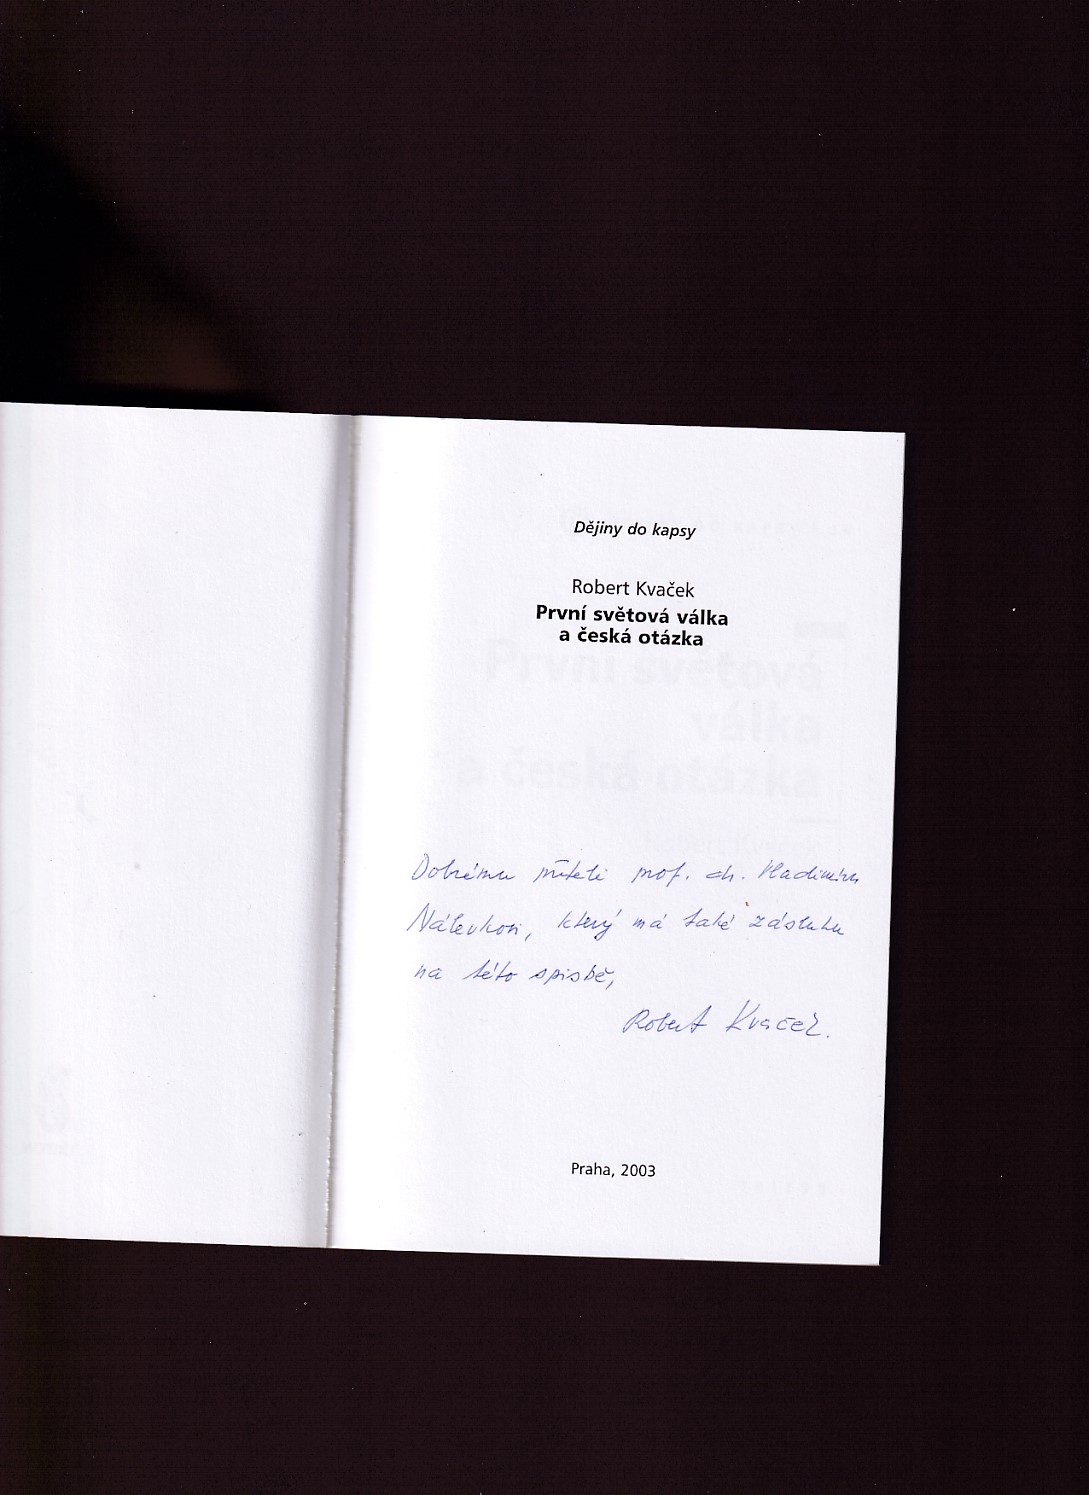 Dějiny do kapsy
Robert Kvaček
První světová válka
a česká otázka
Dobrému příteli prof. dr. Vladimíru
Nálevkovi, který má také zásluhu
na této spisbě,
Robert Kvaček.
Praha, 2003